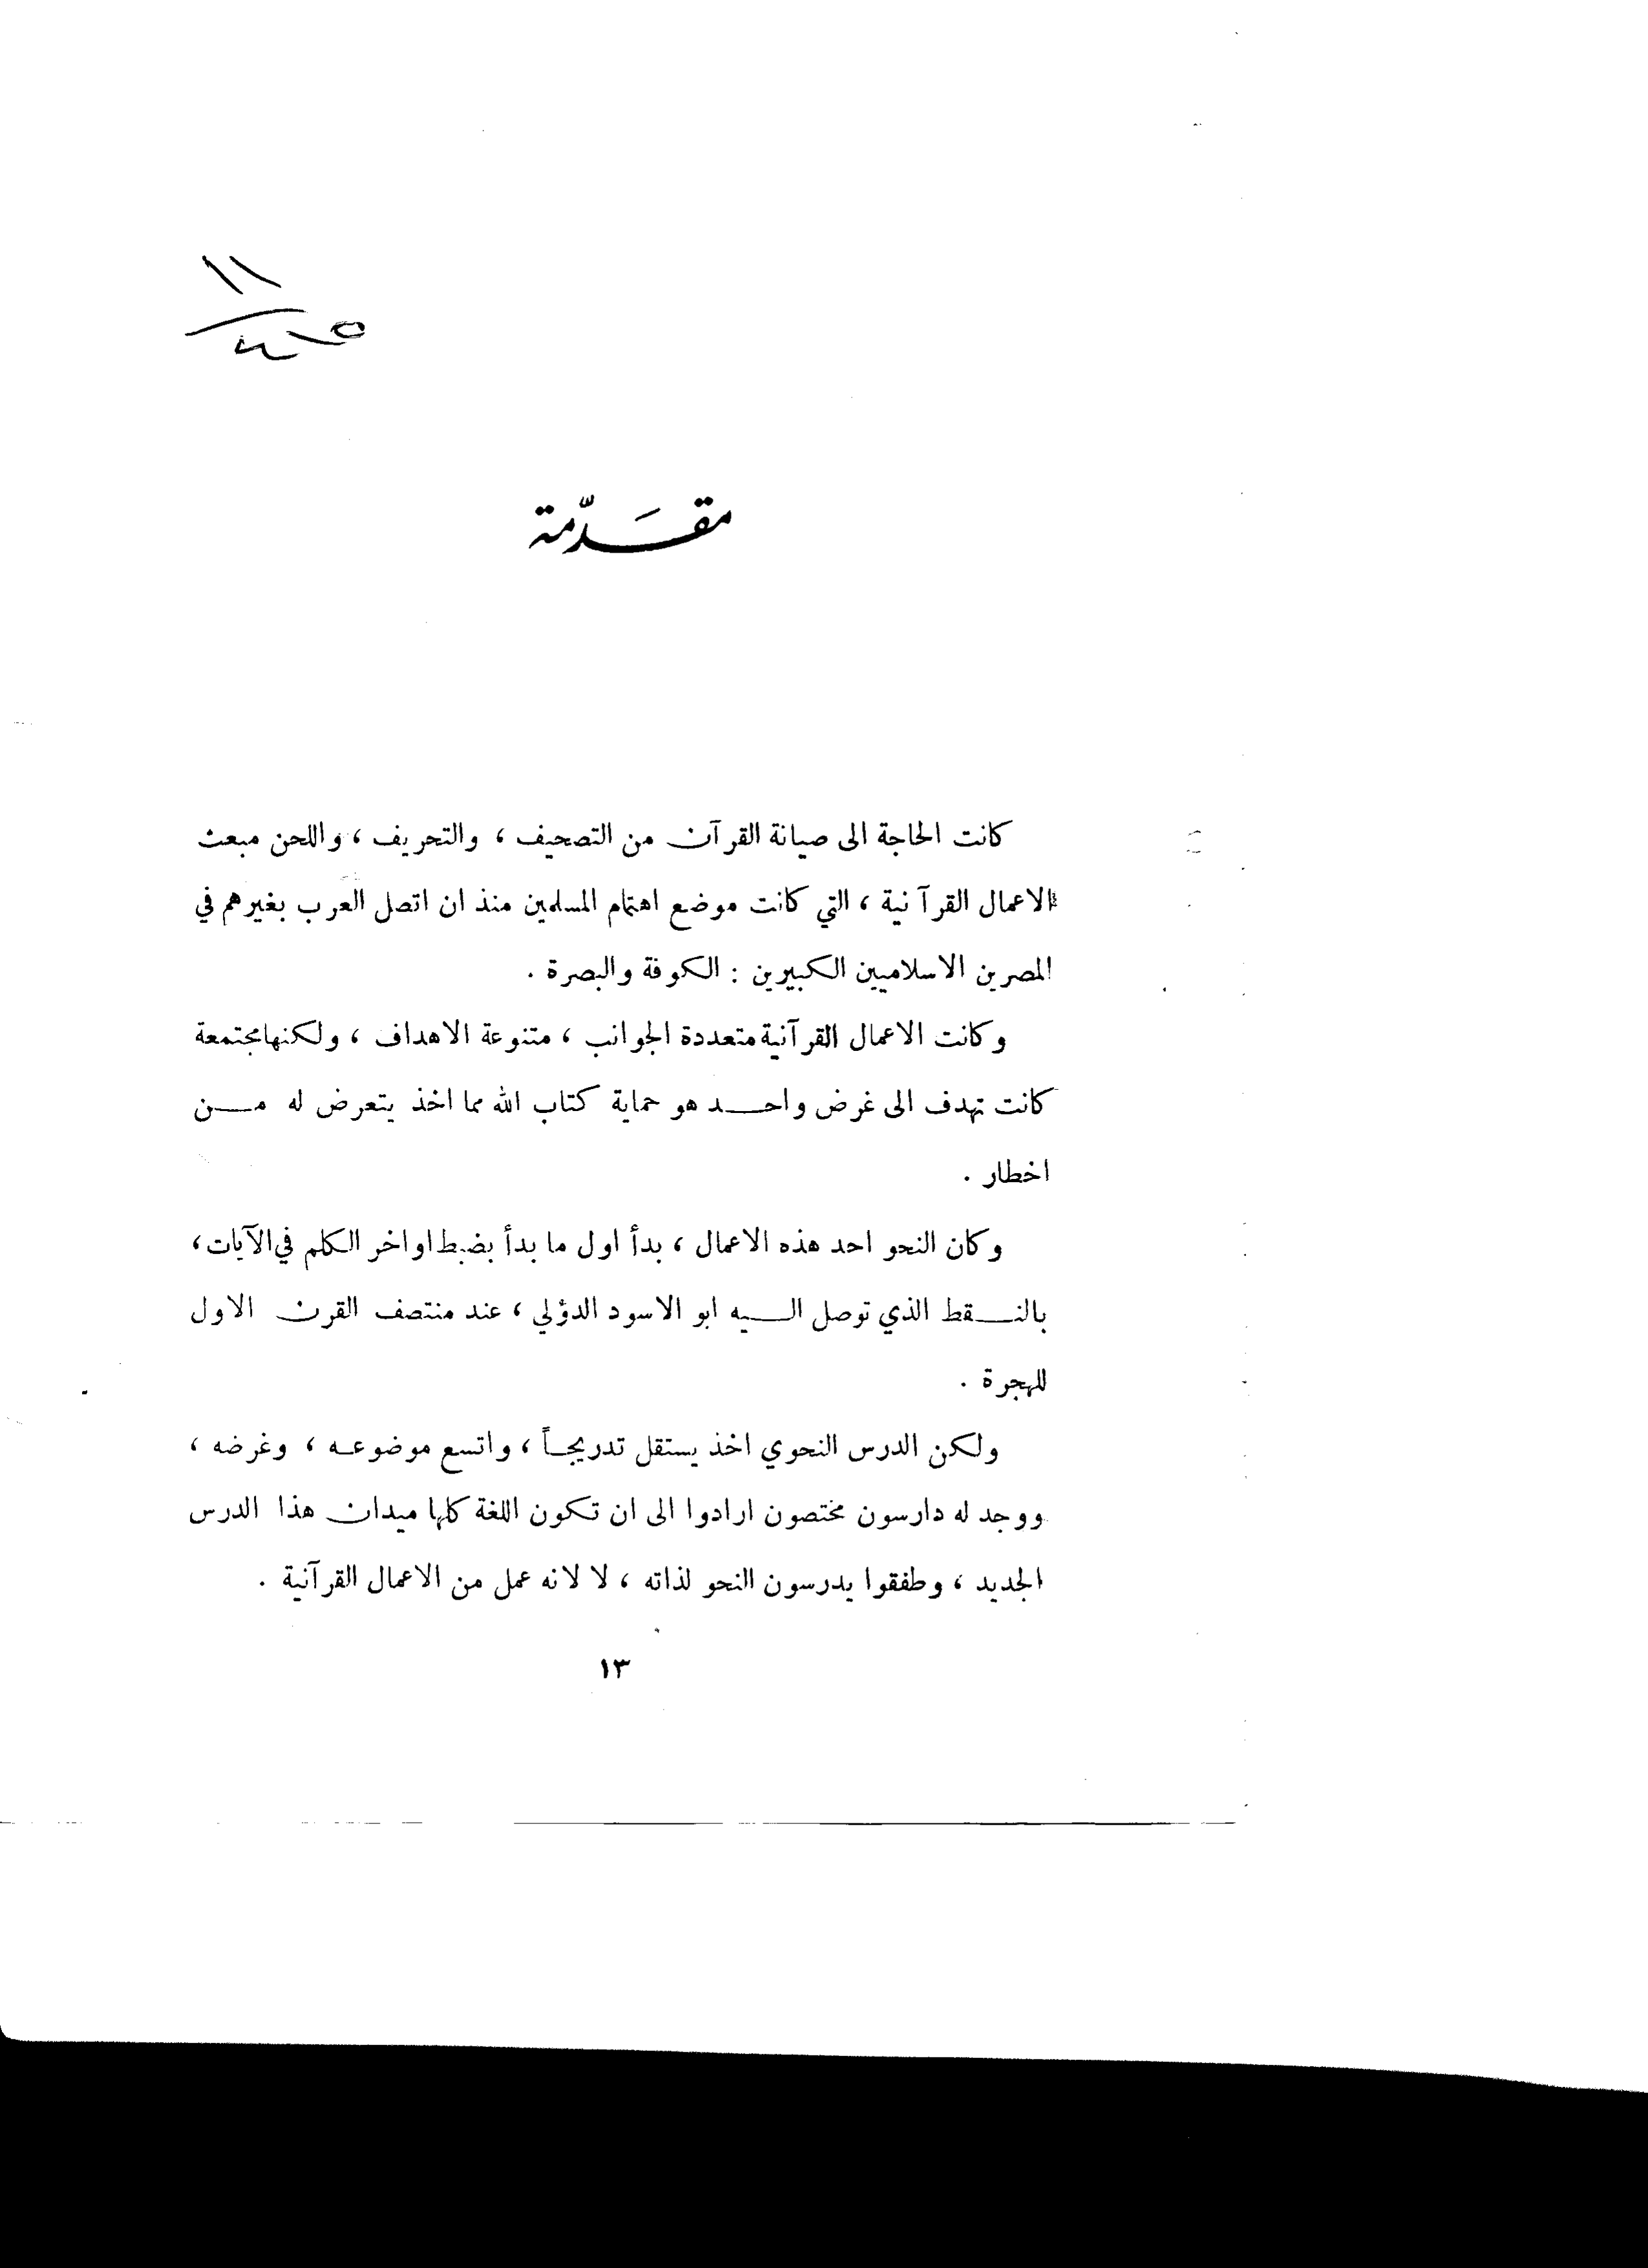 مقَدّمة
كانت الحاجة الى صيانة القرآن من التصحيف ، والتحريف ، واللحن مبعث
الاعمال القرآنية ، التي كانت موضع اهتمام المسلمين منذ ان اتصل العرب بغيرهم في
المصرين الاسلاميين الكبيرين : الكوفة والبصرة .
وكانت الاعمال القرآنية متعددة الجوانب ، متنوعة الاهداف ، ولكنها مجتمعة
كانت تهدف الى غرض واحـــد هو حماية كتاب الله مما اخذ يتعرض له مـــن
اخطار .
وكان النحو احد هذه الاعمال ، بدأ اول ما بدأ بضبط اواخر الكلم في الآيات ،
بالنـــقط الذي توصل الـــيه ابو الاسود الدؤلي ، عند منتصف القرن الاول
للهجرة .
ولكن الدرس النحوي اخذ يستقل تدريجـاً ، واتسع موضوعـه ، وغرضه ،
ووجد له دارسون مختصون ارادوا الى ان تكون اللغة كلها ميدان هذا الدرس
الجديد ، وطفقوا يدرسون النحو لذاته ، لا لانه عمل من الاعمال القرآنية .
١٣